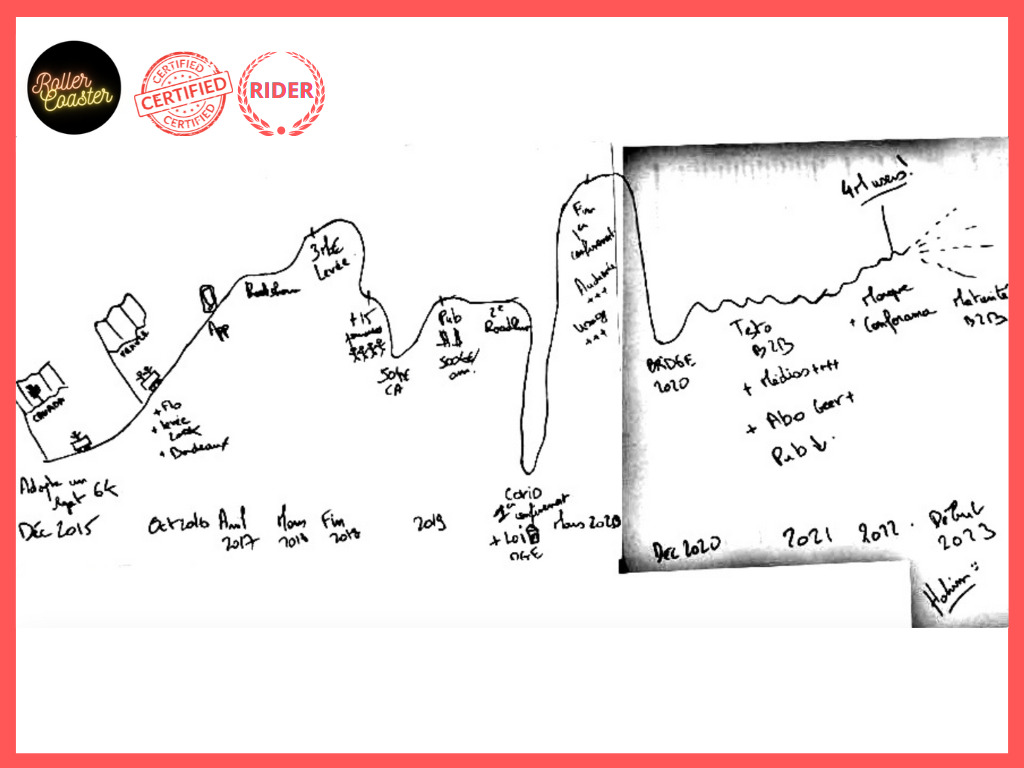 Roller
Coaster
CERTIFIED
CERTIFIED
CERTIFIED
RIDER
CANADA
FRANCE
+ Flo
+ Levée
200K
+ Bordeaux
App
Roadshow
3M€
Levée
+15
50K€
CA
Pub
500K€/
an.
2e
Fin
1er
confinement
Audience
+++
Usage
+++
BRIDGE
2020
Testo
B2B
+ Médias +++
+ Abo User +
Pub ↓
4M users!
Manque
+ Conforama
Maturité
B2B
Adopte un
6K
Déc 2015
Oct 2016
Avril
2017
Mars
2018
Fin
2018
2019
Covid
1er confinement
+ Loi
Mars 2020
Dec 2020
2021
2022
Début
2023